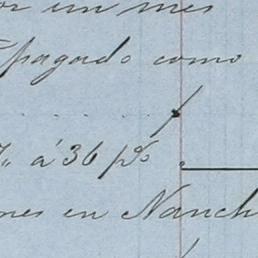 or un mes
pagado como
á 36 p%
nes en Nanch